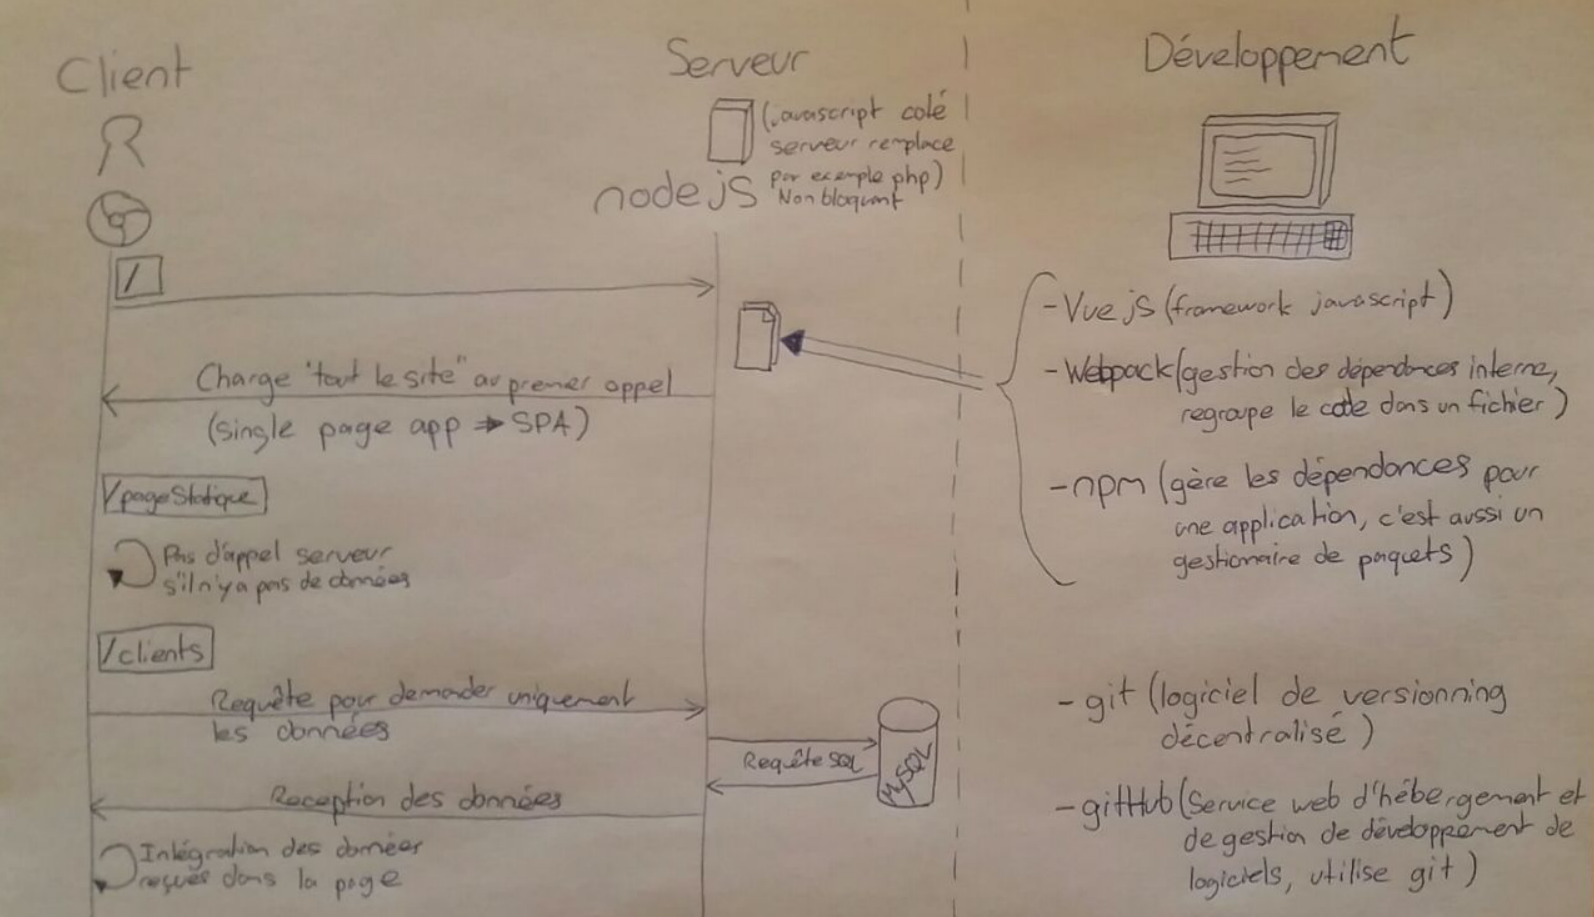 Client
Serveur
(javascript coté
serveur remplace
par exemple php)
Non bloquant
nodejS
/
Charge "tout le site" au premier appel
(single page app → SPA)
/pageStatique
Pas d'appel serveur
s'il n'y a pas de données
/clients
Requête pour demander uniquement
les données
Requête SQL
MySQL
Reception des données
Intégration des données
reçues dans la page
Développement
- Vue jS (framework javascript)
- Webpack (gestion des dépendances interne,
regroupe le code dans un fichier)
- npm (gère les dépendances pour
une application, c'est aussi un
gestionaire de paquets)
- git (logiciel de versionning
décentralisé)
- gitHub (Service web d'hébergement et
de gestion de développement de
logiciels, utilise git)